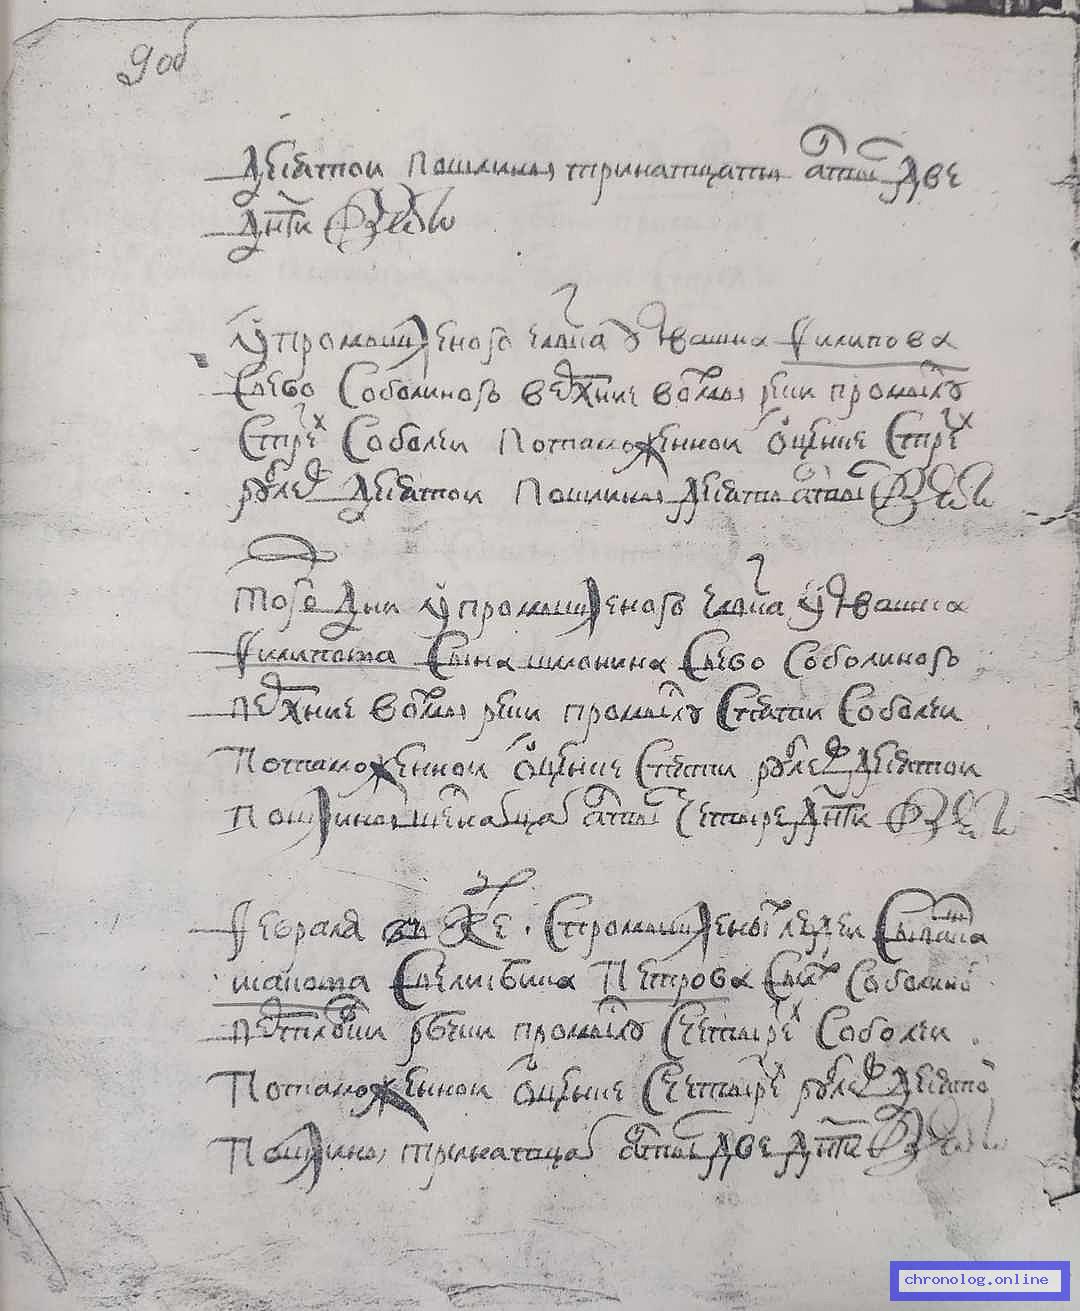 9 об
десятои пошлины тринатцать алтын две
денги взято
у промышленого члвка у Ивашка Филипова
с ево соболиного верхние волмы реки промыслу
с трех соболеи по таможеннои оценке с трех
рублев десятои пошлины десять алтын взято
того ж дни у промышленого члвка у Ивашка
Филипова сына шмонина с ево соболиного
верхние волмы реки промыслу с пяти соболеи
по таможеннои оценке с пяти рублев десятои
пошлины шеснатцать алтын четыре денги взято
Февраля въ с промышленых людеи с
Петрова с их соболиного
реки промыслу с четырех соболеи
по таможеннои оценке с четырех рублев десятои
пошлины тринатцать алтын две денги взято
chronolog.online